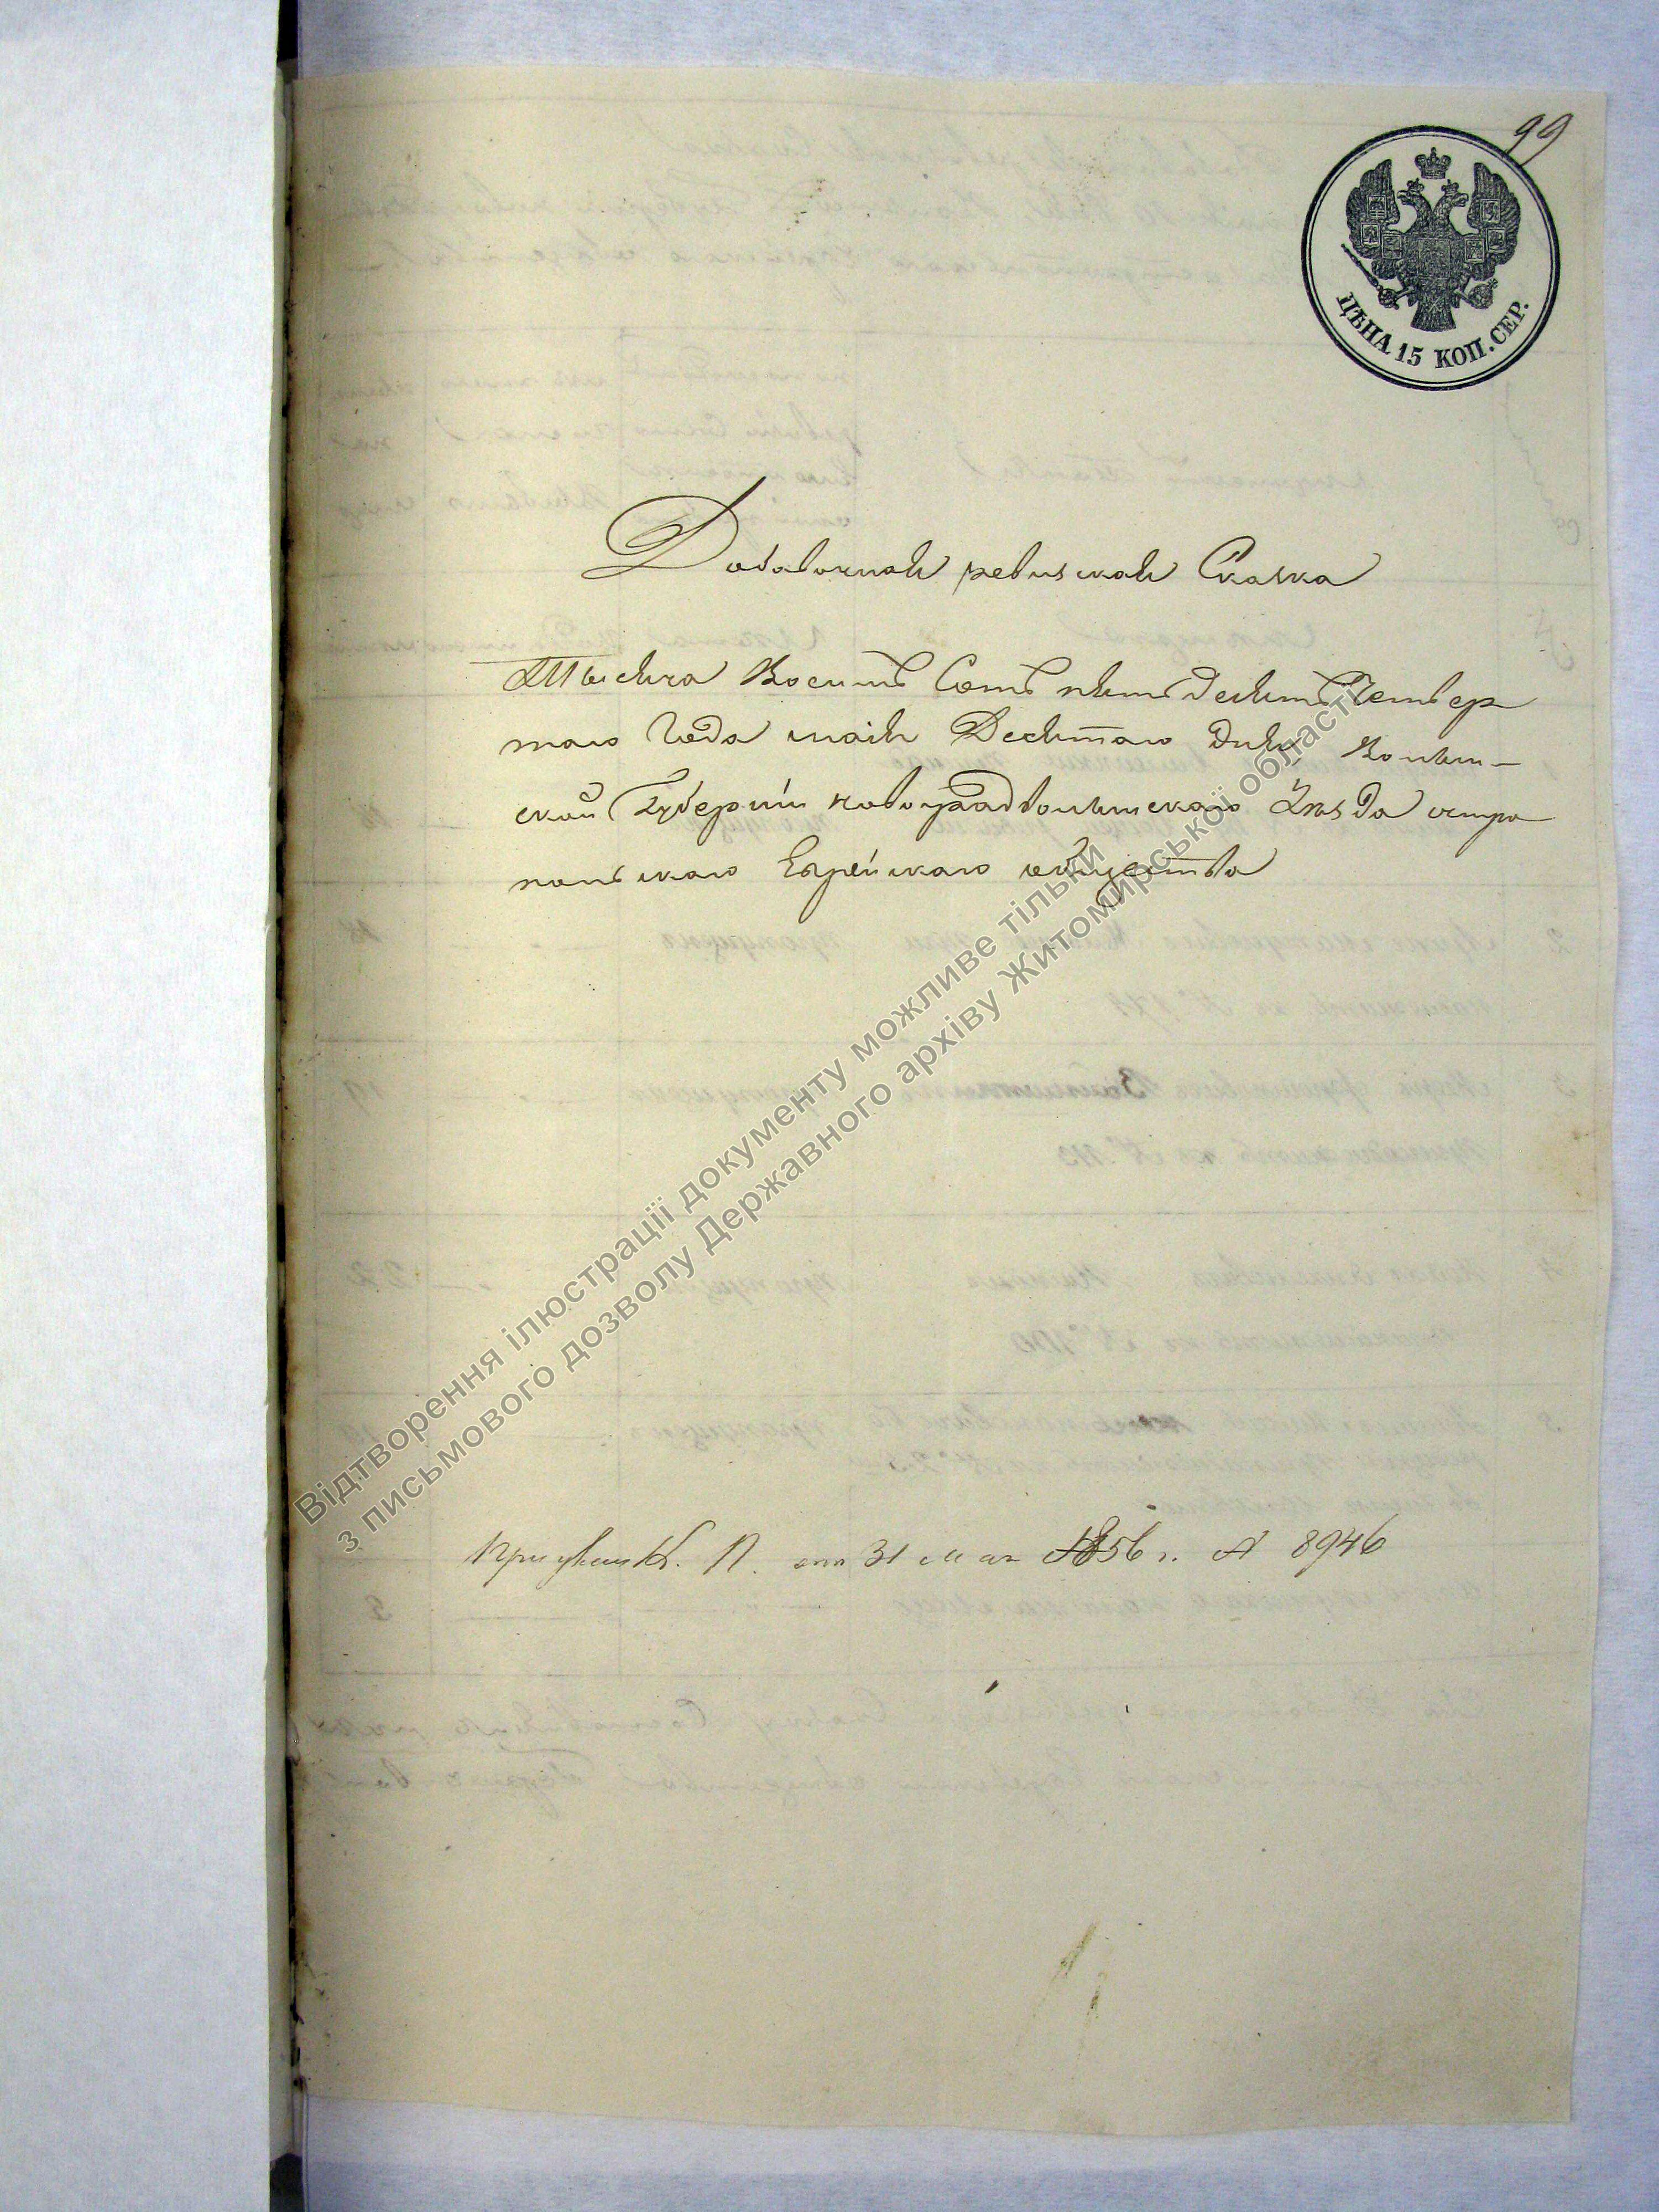 99
ЦѢНА 15 КОП. СЕР.
Добавочная ревизская Сказка
Тысяча Восемь Сотъ пятьдесятъ Четвер
таго Года маія Десятаго дня Волын-
ской Губерніи новоградволынскаго Уѣзда остро
польскаго Еврейскаго общества
К. П. отъ 31 мая 1856 г. № 8946
Відтворення ілюстрації документу можливе тільки
з письмового дозволу Державного архіву Житомирської області